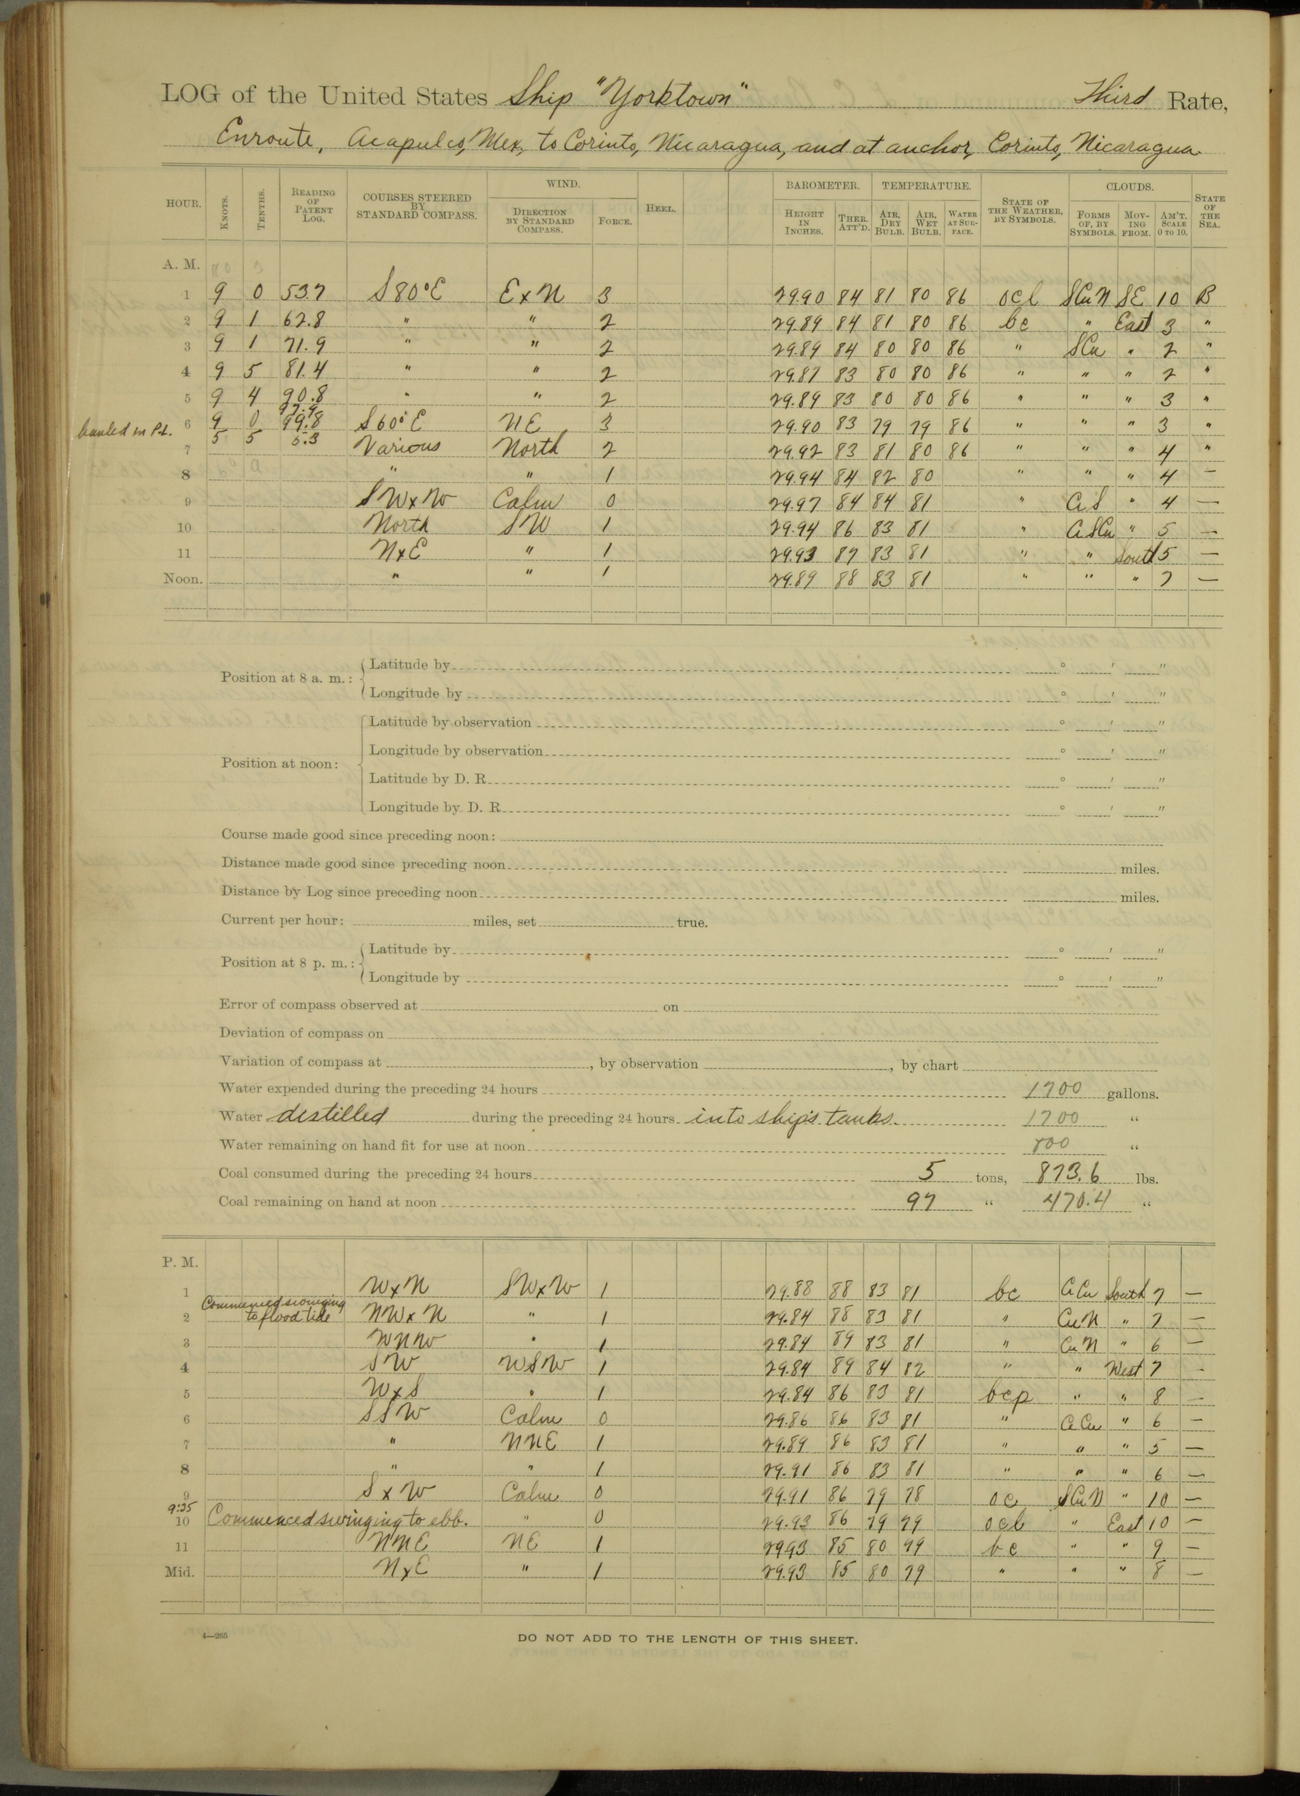 LOG of the United States Ship "Yorktown" Third Rate,
Enroute, Acapulco, Mex, to Corinto, Nicaragua, and at anchor, Corinto, Nicaragua
HOUR. KNOTS. TENTHS. READING OF PATENT LOG. COURSES STEERED BY STANDARD COMPASS. WIND. DIRECTION BY STANDARD COMPASS. FORCE. HEEL. BAROMETER. HEIGHT IN INCHES. THER. ATT'D. TEMPERATURE. AIR, DRY BULB. AIR, WET BULB. WATER AT SURFACE. STATE OF THE WEATHER, BY SYMBOLS. CLOUDS. FORMS OF, BY SYMBOLS. MOVING FROM. AM'T. SCALE 0 TO 10. STATE OF THE SEA.
A. M.
1 9 0 53.7 S80°E ExN 3 29.90 84 81 80 86 ocl SCuN SE 10 B
2 9 1 62.8 " " 2 29.89 84 81 80 86 bc " East 3 "
3 9 1 71.9 " " 2 29.89 84 80 80 86 " SCu " 2 "
4 9 5 81.4 " " 2 29.87 83 80 80 86 " " " 2 "
5 9 4 90.8 " " 2 29.89 83 80 80 86 " " " 3 "
97.9
hauled in P.L. 6 9 0 99.8 S60°E NE 3 29.90 83 79 79 86 " " " 3 "
7 5 5 5.3 Various North 2 29.92 83 81 80 86 " " " 4 "
8 " " 1 29.94 84 82 80 " " " 4 —
9 SWxW Calm 0 29.97 84 84 81 " CS " 4 —
10 North SW 1 29.94 86 83 81 " C SCu " 5 —
11 NxE " 1 29.93 87 83 81 " " South 5 —
Noon. " " 1 29.89 88 83 81 " " " 7 —
Position at 8 a. m.: Latitude by ° ′ ″
Longitude by ° ′ ″
Position at noon: Latitude by observation ° ′ ″
Longitude by observation ° ′ ″
Latitude by D. R. ° ′ ″
Longitude by D. R. ° ′ ″
Course made good since preceding noon:
Distance made good since preceding noon miles.
Distance by Log since preceding noon miles.
Current per hour: miles, set true.
Position at 8 p. m.: Latitude by ° ′ ″
Longitude by ° ′ ″
Error of compass observed at on
Deviation of compass on
Variation of compass at , by observation , by chart
Water expended during the preceding 24 hours 1700 gallons.
Water distilled during the preceding 24 hours into ship's tanks. 1700 "
Water remaining on hand fit for use at noon "
Coal consumed during the preceding 24 hours 5 tons, 873.6 lbs.
Coal remaining on hand at noon 97 " 470.4 "
P. M.
1 WxN SWxW 1 29.88 88 83 81 bc C Cu South 7 —
Commenced swinging to flood tide
2 NWxN " 1 29.84 88 83 81 " CuN " 7 —
3 WNW " 1 29.84 89 83 81 " CuN " 6 —
4 SW WSW 1 29.84 89 84 82 " " West 7 -
5 WxS " 1 29.84 86 83 81 bcp " " 8 -
6 SSW Calm 0 29.86 86 83 81 " C Cu " 6 —
7 " NNE 1 29.89 86 83 81 " " " 5 —
8 " " 1 29.91 86 83 81 " " " 6 —
9 SxW Calm 0 29.91 86 79 78 oc SCuN " 10 —
9:35
10 Commenced swinging to ebb. " 0 29.93 86 79 79 ocl " East 10 —
11 NNE NE 1 29.93 85 80 79 bc " " 9 —
Mid. NxE " 1 29.93 85 80 79 " " " 8 —
4—265
DO NOT ADD TO THE LENGTH OF THIS SHEET.